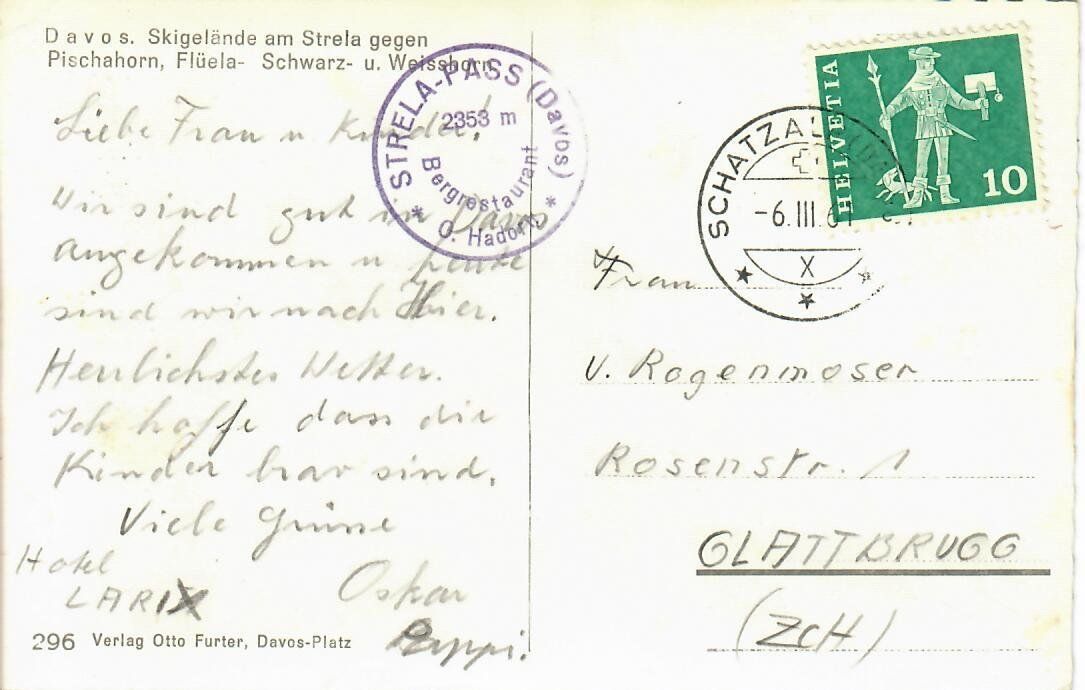 Davos. Skigelände am Strela gegen
Pischahorn, Flüela- Schwarz- u. Weisshorn
STRELA-PASS (Davos)
2353 m
Bergrestaurant
* O. Hadorn *
Liebe Frau u Kinder!
Wir sind gut in Davos
angekommen u heute
sind wir nach Hier.
Herrlichstes Wetter.
Ich hoffe dass die
Kinder brav sind.
Viele Grüsse
Hotel
LARIX
Oskar
296 Verlag Otto Furter, Davos-Platz
HELVETIA
10
SCHATZALP
-6.III.
X
Frau
v. Rogenmoser
Rosenstr. 1
GLATTBRUGG
(ZCH)